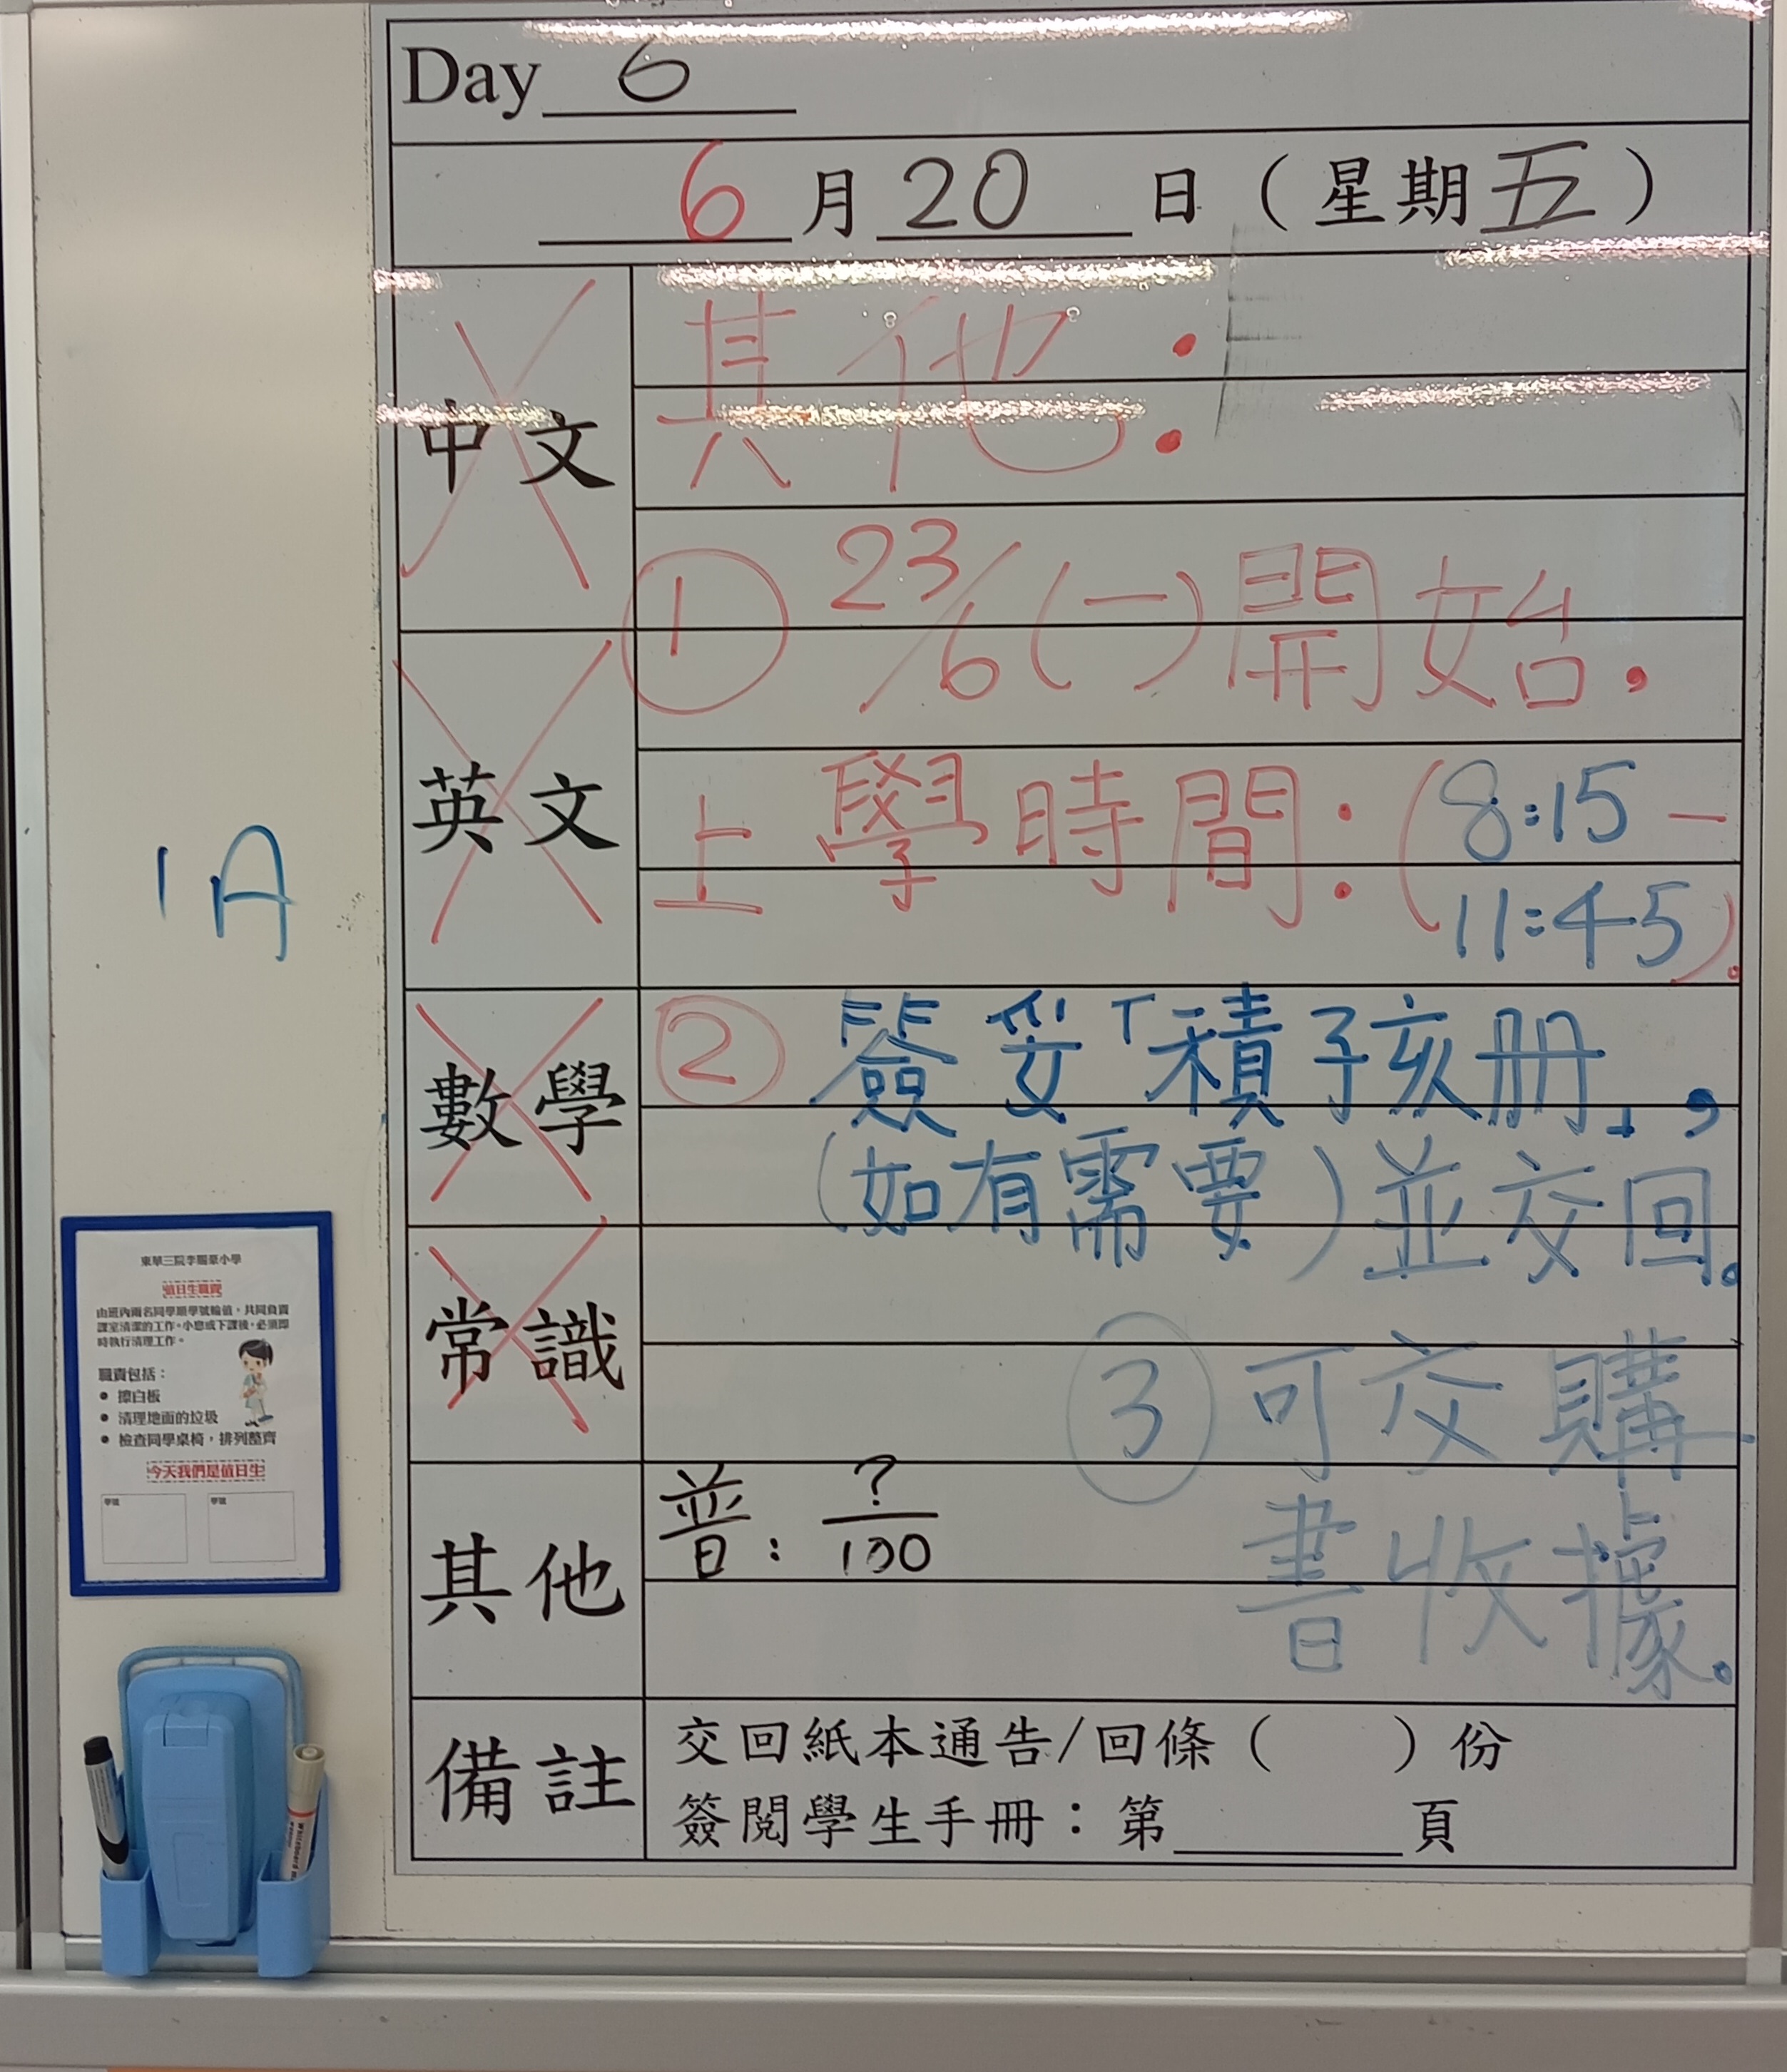 Day 6
6月20日（星期五）
中文
其他：
① 23/6(一)開始，
英文
上學時間：(8:15－
11:45)。
1A
數學
② 簽妥「積孩子冊」，
(如有需要)並交回。
常識
③ 可交購
書收據。
其他
普：?/100
備註
交回紙本通告/回條（　　）份
簽閱學生手冊：第______頁
東華三院李賜豪小學
值日生職責
由班內兩名同學順學號輪值，共同負責
課室清潔的工作。小息或下課後，必須即
時執行清理工作。
職責包括：
• 擦白板
• 清理地面的垃圾
• 檢查同學桌椅，排列整齊
今天我們是值日生
學號 學號
Whiteboard